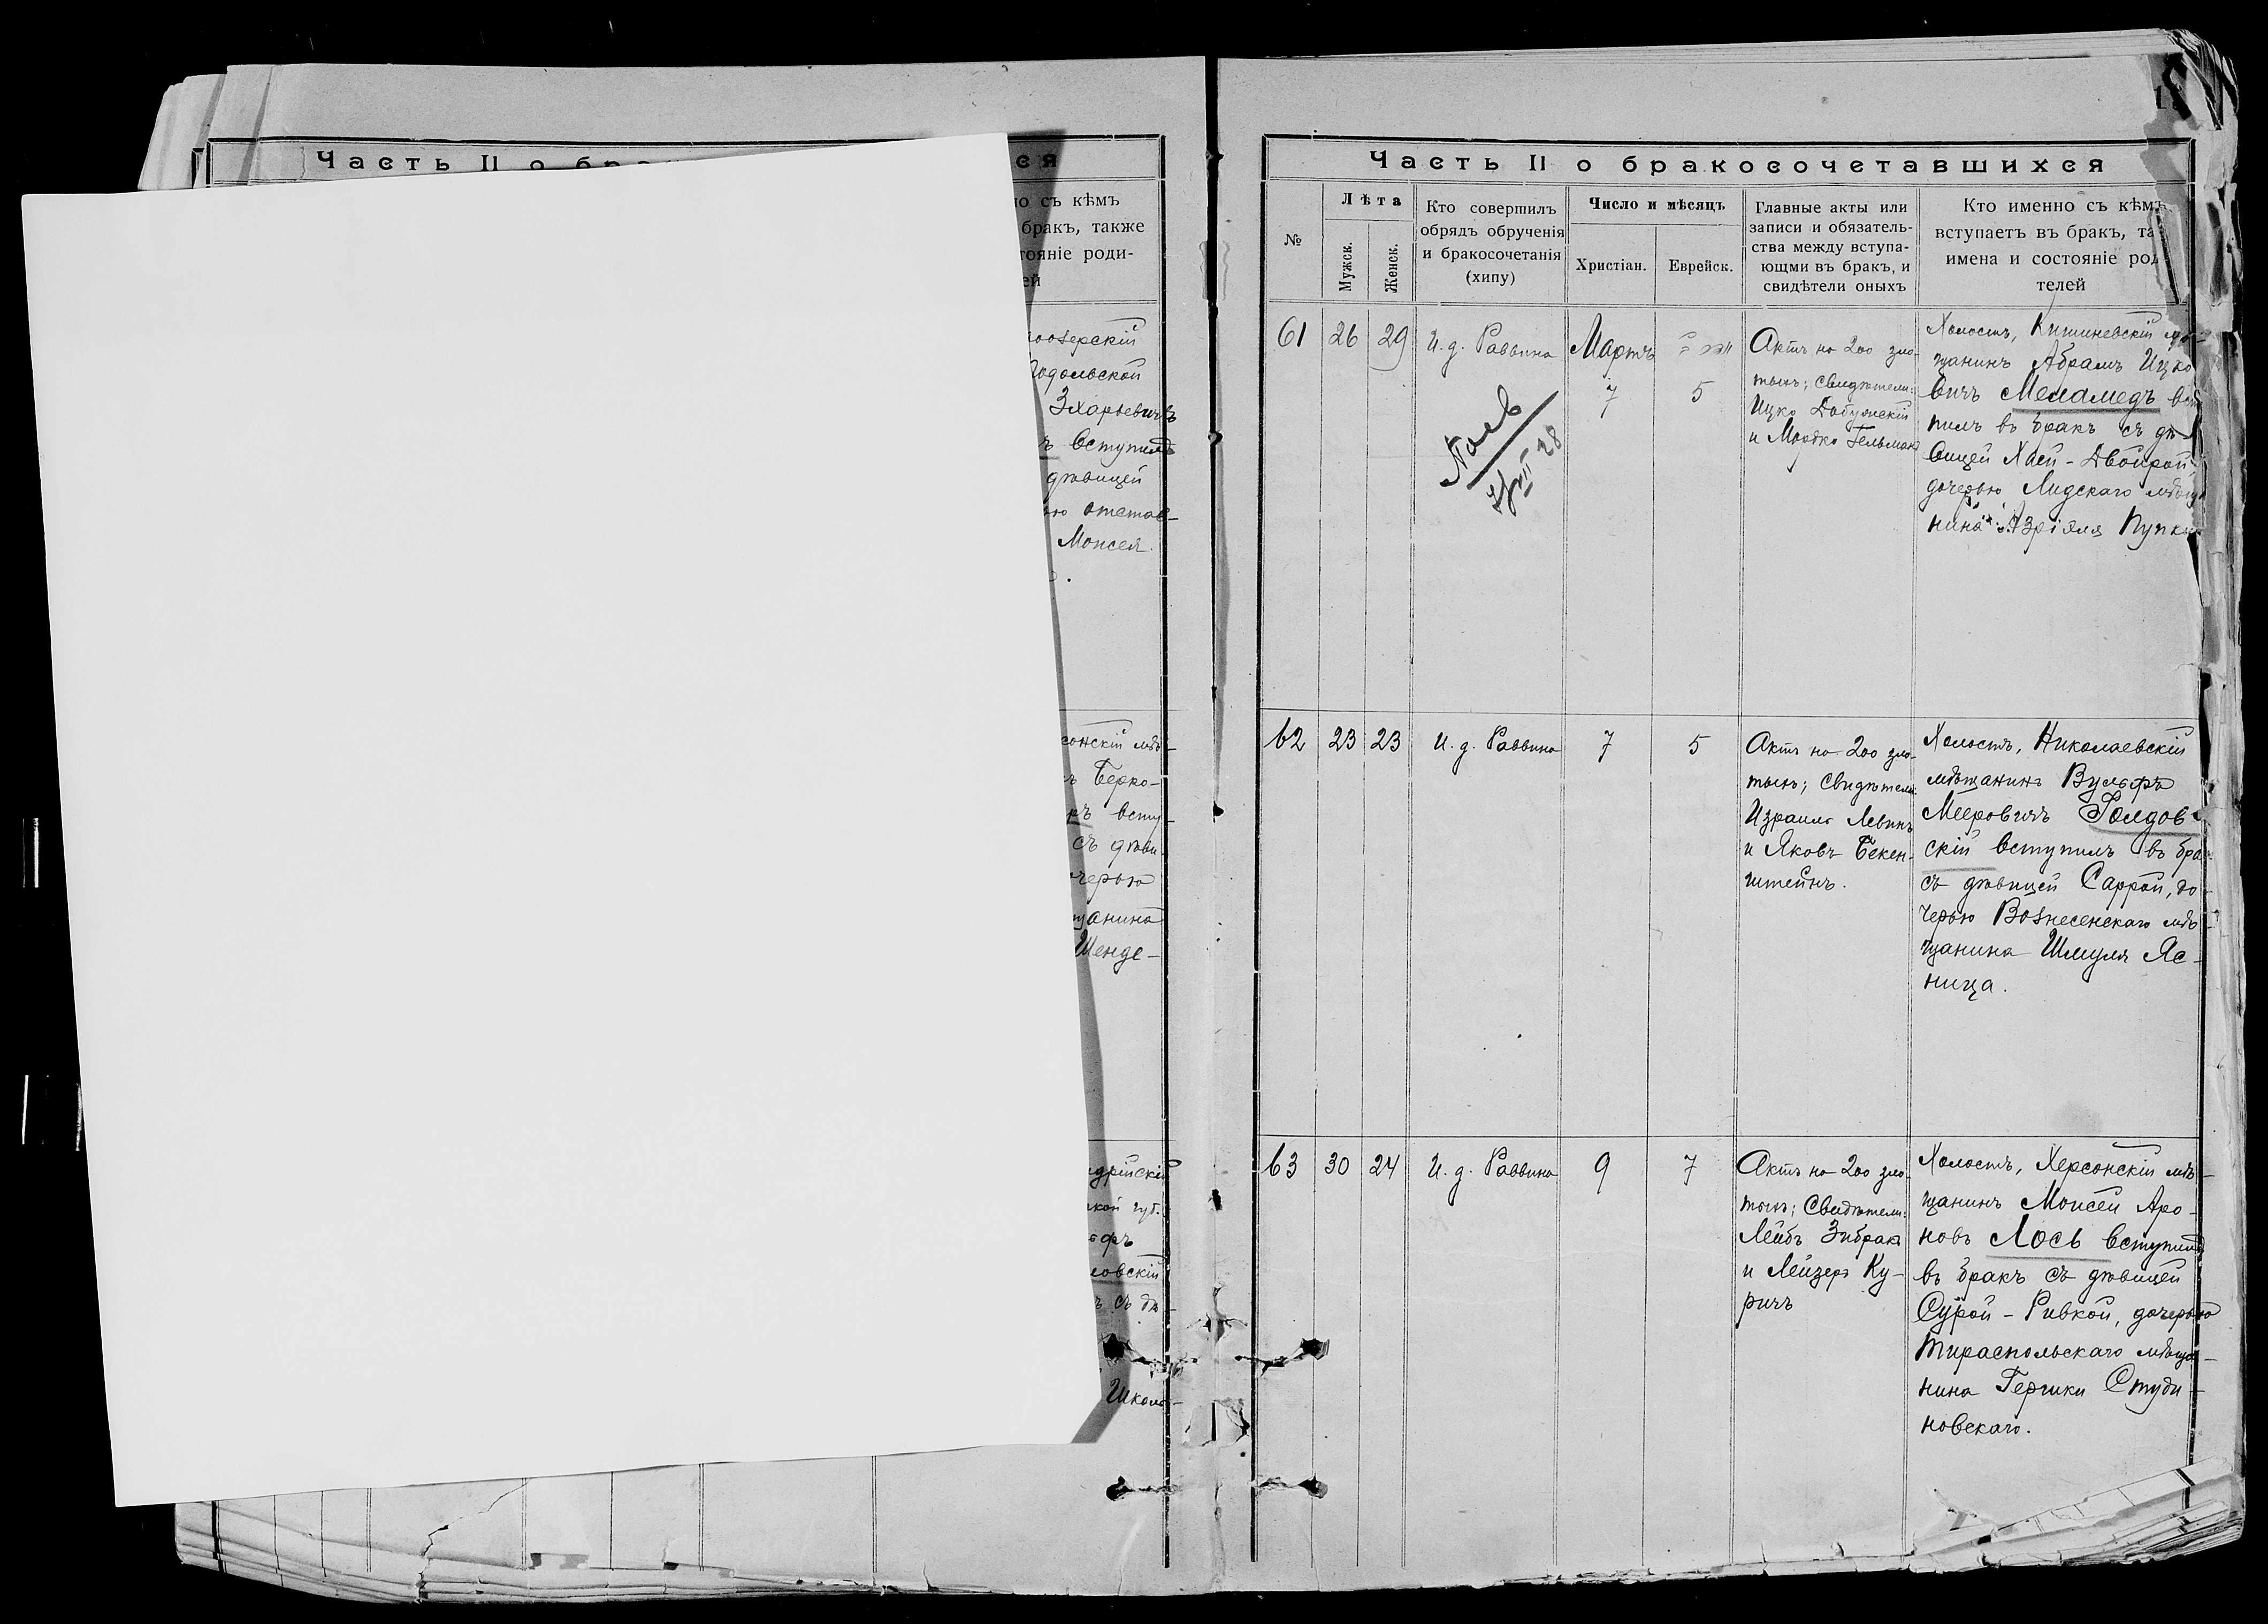 Часть II о бра
ся
съ кѣмъ
бракъ, также
роди-
Подольской
Эхарьевичъ
вступилъ
дѣвицей
отстав-
Моисея.
Берко-
всту-
съ дѣви-
щанина
Шенде-
губ.
съ дѣ-
Школь-
Часть II о бракосочетавшихся
№
Лѣта
Мужск.
Женск.
Кто совершилъ
обрядъ обрученія
и бракосочетанія
(хипу)
Число и мѣсяцъ
Христіан.
Еврейск.
Главные акты или
записи и обязатель-
ства между вступа-
ющми въ бракъ, и
свидѣтели оныхъ
Кто именно съ кѣмъ
вступаетъ въ бракъ, та
имена и состояніе род
телей
61
26
29
И. д. Раввина
Мартъ
7
5
28
Актъ на 200 зло-
тыхъ; Свидѣтели:
Ицко
и Мордко Гельман
Холостъ, Кишиневскій мѣ-
щанинъ Абрамъ Ицко
вичъ Меламедъ всту
пилъ въ бракъ съ дѣ-
вицей Хаей-Двойрой
дочерью Лидскаго мѣща
нина Азріяля Пупко
62
23
23
И. д. Раввина
7
5
Актъ на 200 зло-
тыхъ; Свидѣтели:
Израиль Левинъ
и Яковъ Бекен-
штейнъ.
Холостъ, Николаевскій
мѣщанинъ Вульфъ
Мееровичъ Голдов-
скій вступилъ въ бра
съ дѣвицей Саррой, до-
черью Вознесенскаго мѣ-
щанина Шмуля Яс-
ница.
63
30
24
И. д. Раввина
9
7
Актъ на 200 зло-
тыхъ; Свидѣтели:
Лейбъ Зибрак
и Лейзеръ Ку-
ричъ
Холостъ, Херсонскій мѣ-
щанинъ Моисей Аро-
новъ Лось вступилъ
въ бракъ съ дѣвицей
Сурой-Ривкой, дочерью
Тираспольскаго мѣща-
нина Гершки Студи-
новскаго.